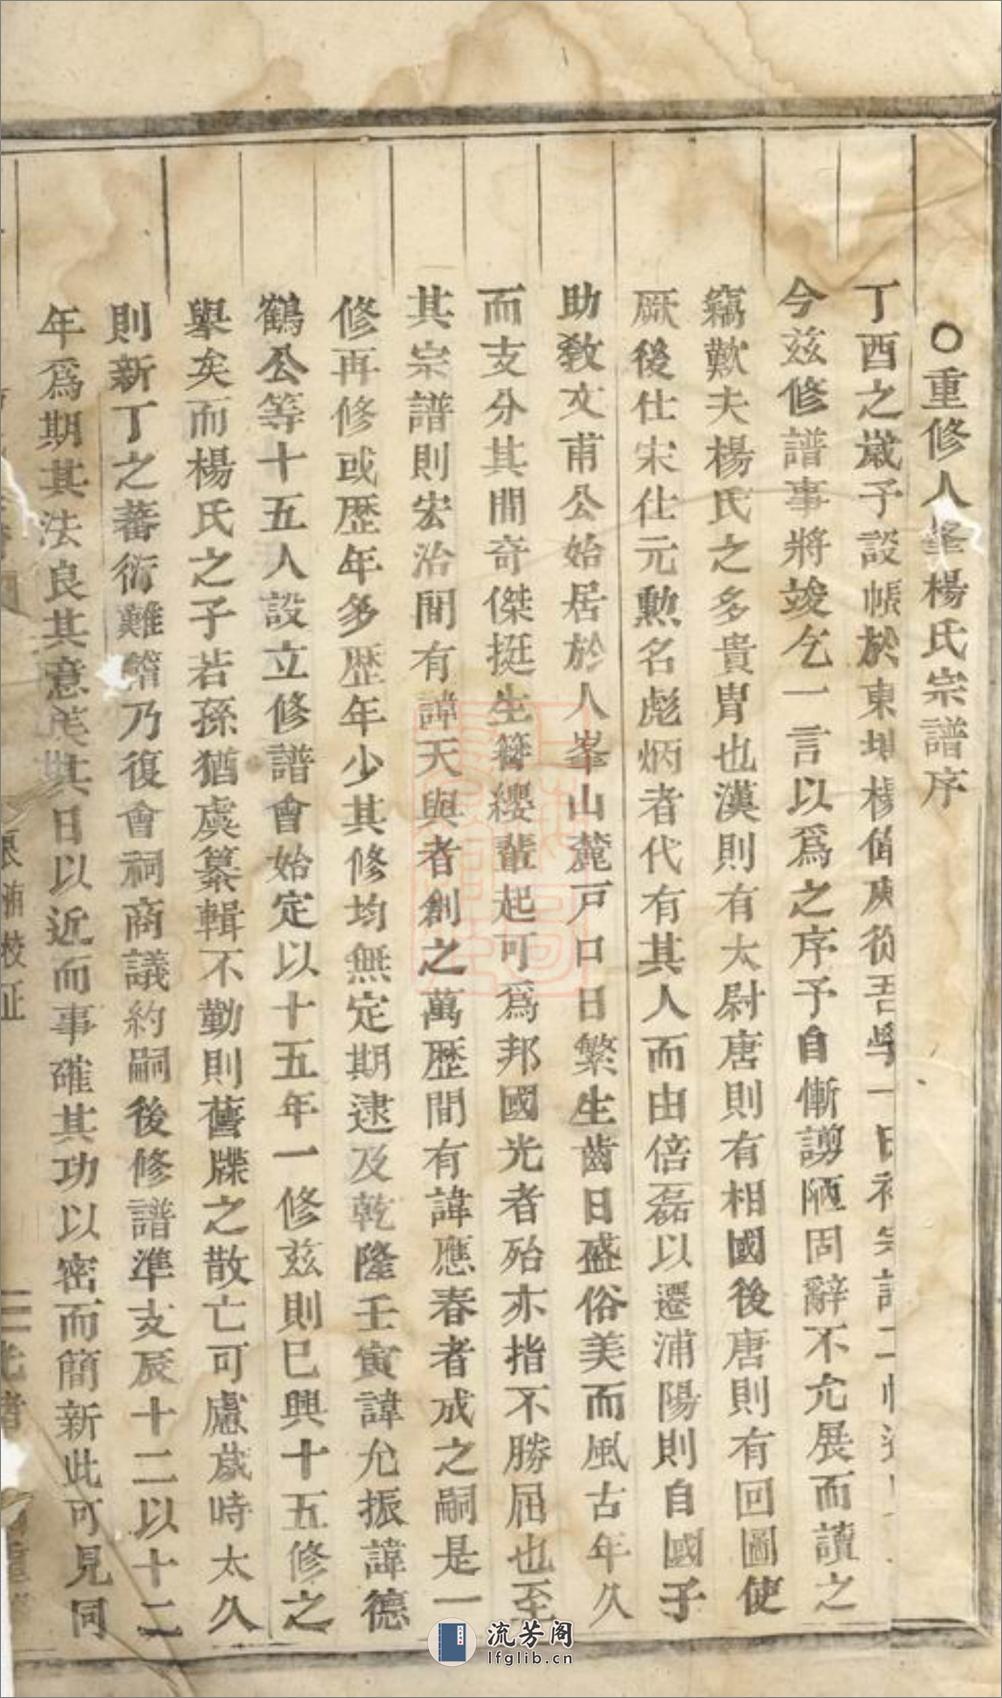 ○重修人峯楊氏宗譜序
丁酉之歲予設帳於東 從吾學一日 宗譜二
今茲修譜事將竣乞一言以爲之序予自慚謭陋固辭不允展而讀之
竊歎夫楊氏之多貴胄也漢則有太尉唐則有相國後唐則有回圖使
厥後仕宋仕元勲名彪炳者代有其人而由倍磊以遷浦陽則自國子
助敎文甫公始居於人峯山麓戸口日繁生齒日盛俗美而風古年久
而支分其間奇傑挺生簪纓輩起可爲邦國光者殆亦指不勝屈也至
其宗譜則宏治間有諱天與者創之萬歴間有諱應春者成之嗣是一
修再修或歴年多歴年少其修均無定期逮及乾隆壬寅諱允振諱德
鶴公等十五人設立修譜會始定以十五年一修茲則巳興十五修之
舉矣而楊氏之子若孫猶虞纂輯不勤則舊牒之散亡可慮歲時太久
則新丁之蕃衍難籌乃復會祠商議約嗣後修譜準支辰十二以十二
年爲期其法良其意美其日以近而事確其功以密而簡新此可見同
校正 二 光緒 重
流芳阁
lfglib.cn